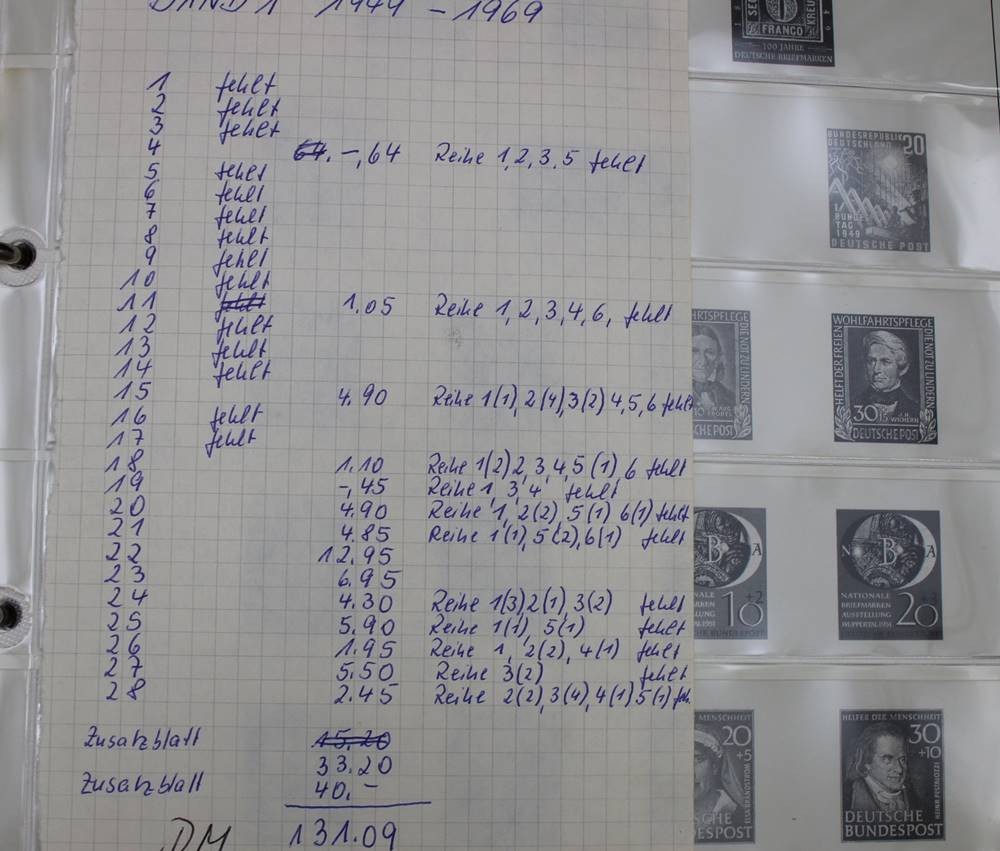 BAND 1 1949 - 1969
1 fehlt
2 fehlt
3 fehlt
4 64. -,64 Reihe 1,2,3,5 fehlt
5 fehlt
6 fehlt
7 fehlt
8 fehlt
9 fehlt
10 fehlt
11 fehlt 1.05 Reihe 1,2,3,4,6, fehlt
12 fehlt
13 fehlt
14 fehlt
15 4.90 Reihe 1(1), 2(4), 3(2) 4,5,6 fehlt
16 fehlt
17 fehlt
18 1.10 Reihe 1(2) 2, 3, 4, 5 (1), 6 fehlt
19 -,45 Reihe 1, 3, 4 fehlt
20 4.90 Reihe 1, 2(2), 5(1) 6(1) fehlt
21 4.85 Reihe 1(1), 5(2), 6(1) fehlt
22 12.95
23 6.95
24 4.30 Reihe 1(3), 2(1), 3(2) fehlt
25 5.90 Reihe 1(1), 5(1) fehlt
26 1.95 Reihe 1, 2(2), 4(1) fehlt
27 5.50 Reihe 3(2) fehlt
28 2.45 Reihe 2(2), 3(4), 4(1) 5(1) feh
Zusatzblatt 15.20
33.20
Zusatzblatt 40.-
DM 131.09
FRANCO
100 JAHRE
DEUTSCHE BRIEFMARKEN
BUNDESREPUBLIK 20
DEUTSCHLAND
1.
BUNDES
TAG
1949
DEUTSCHE POST
HRTSPFLEGE
DIE NOT ZU LINDERN
10
CHE POST
WOHLFAHRTSPFLEGE
HELFT DER FREIEN
DIE NOT ZU LINDERN
30+15 J.H. WICHERN
DEUTSCHE POST
B A
NALE
RKEN
10 +2
N B A
NATIONALE
BRIEFMARKEN
AUSSTELLUNG
WUPPERTAL 1951
20
DEUTSCHE BUNDESPOST
MENSCHHEIT
20
+5
ELSA BRANDSTRÖM
CHE
DESPOST
HELFER DER MENSCHHEIT
30
+10
HEINR. PESTALOZZI
DEUTSCHE
BUNDESPOST